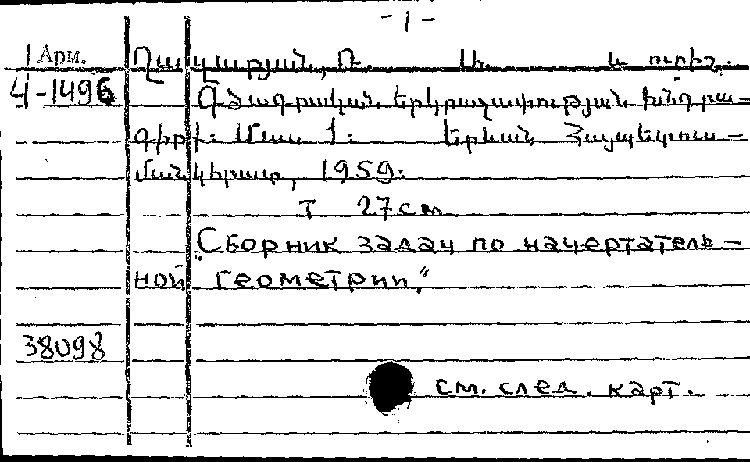 - 1 -
Арм. Ղազարյան, Ռ. Ա. և ուրիշ.
4-1496 Գծագրական երկրաչափության խնդրա-
գիրք: Մաս 1: Երևան, Հայպետուս-
մանկհրատ, 1959:
T 27 см
"Сборник задач по начертатель-
ной геометрии."
38098
см. след. карт.